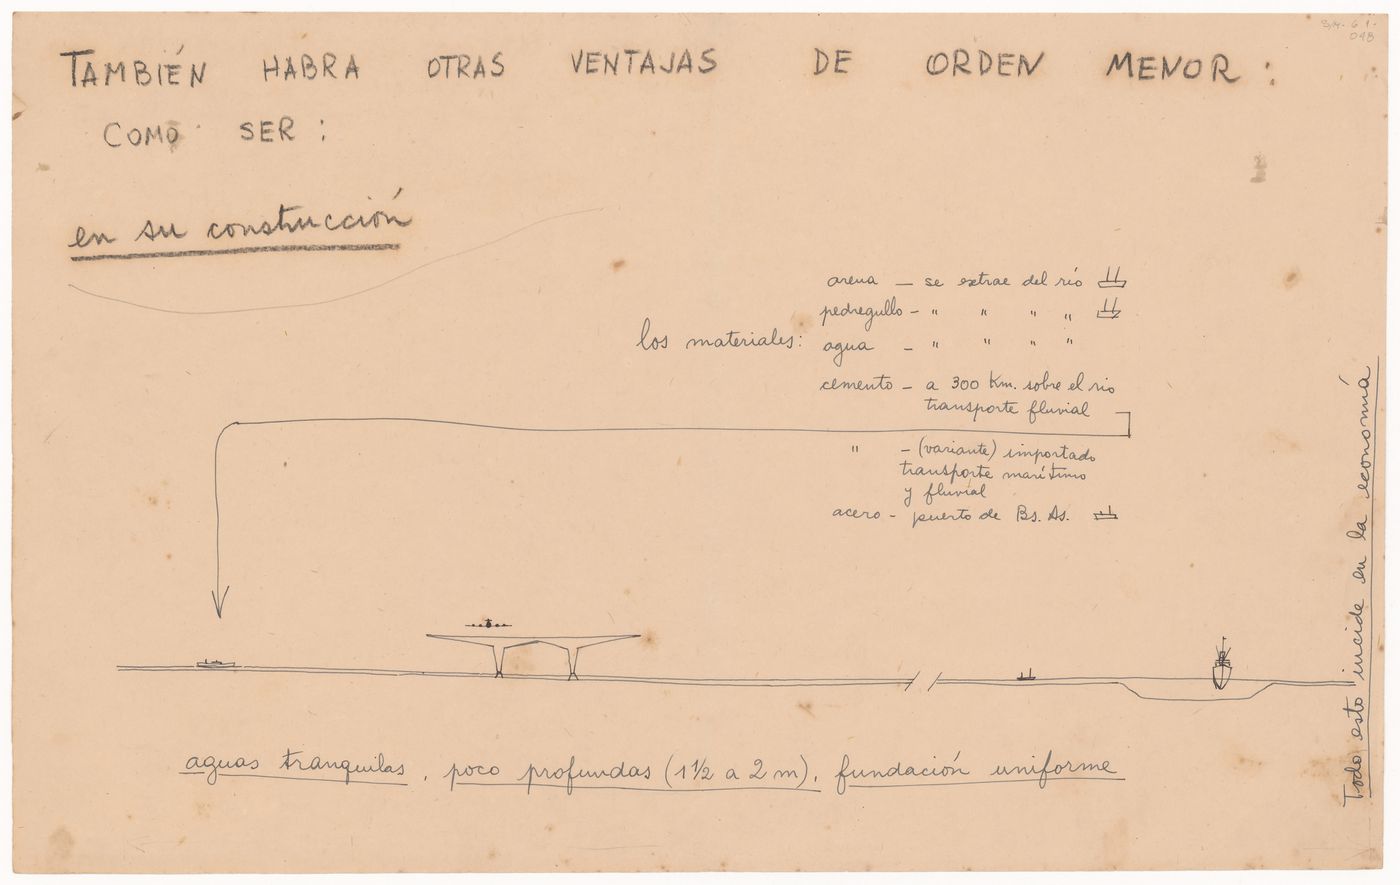 SA-61-
048
TAMBIÉN HABRA OTRAS VENTAJAS DE ORDEN MENOR :
COMO SER :
en su construcción
los materiales:
arena — se extrae del río
pedregullo - " " " "
agua - " " " "
cemento - a 300 Km. sobre el rio
transporte fluvial
" - (variante) importado
transporte marítimo
y fluvial
acero - puerto de Bs. As.
aguas tranquilas, poco profundas (1 1/2 a 2 m), fundación uniforme
Todo esto incide en la economía